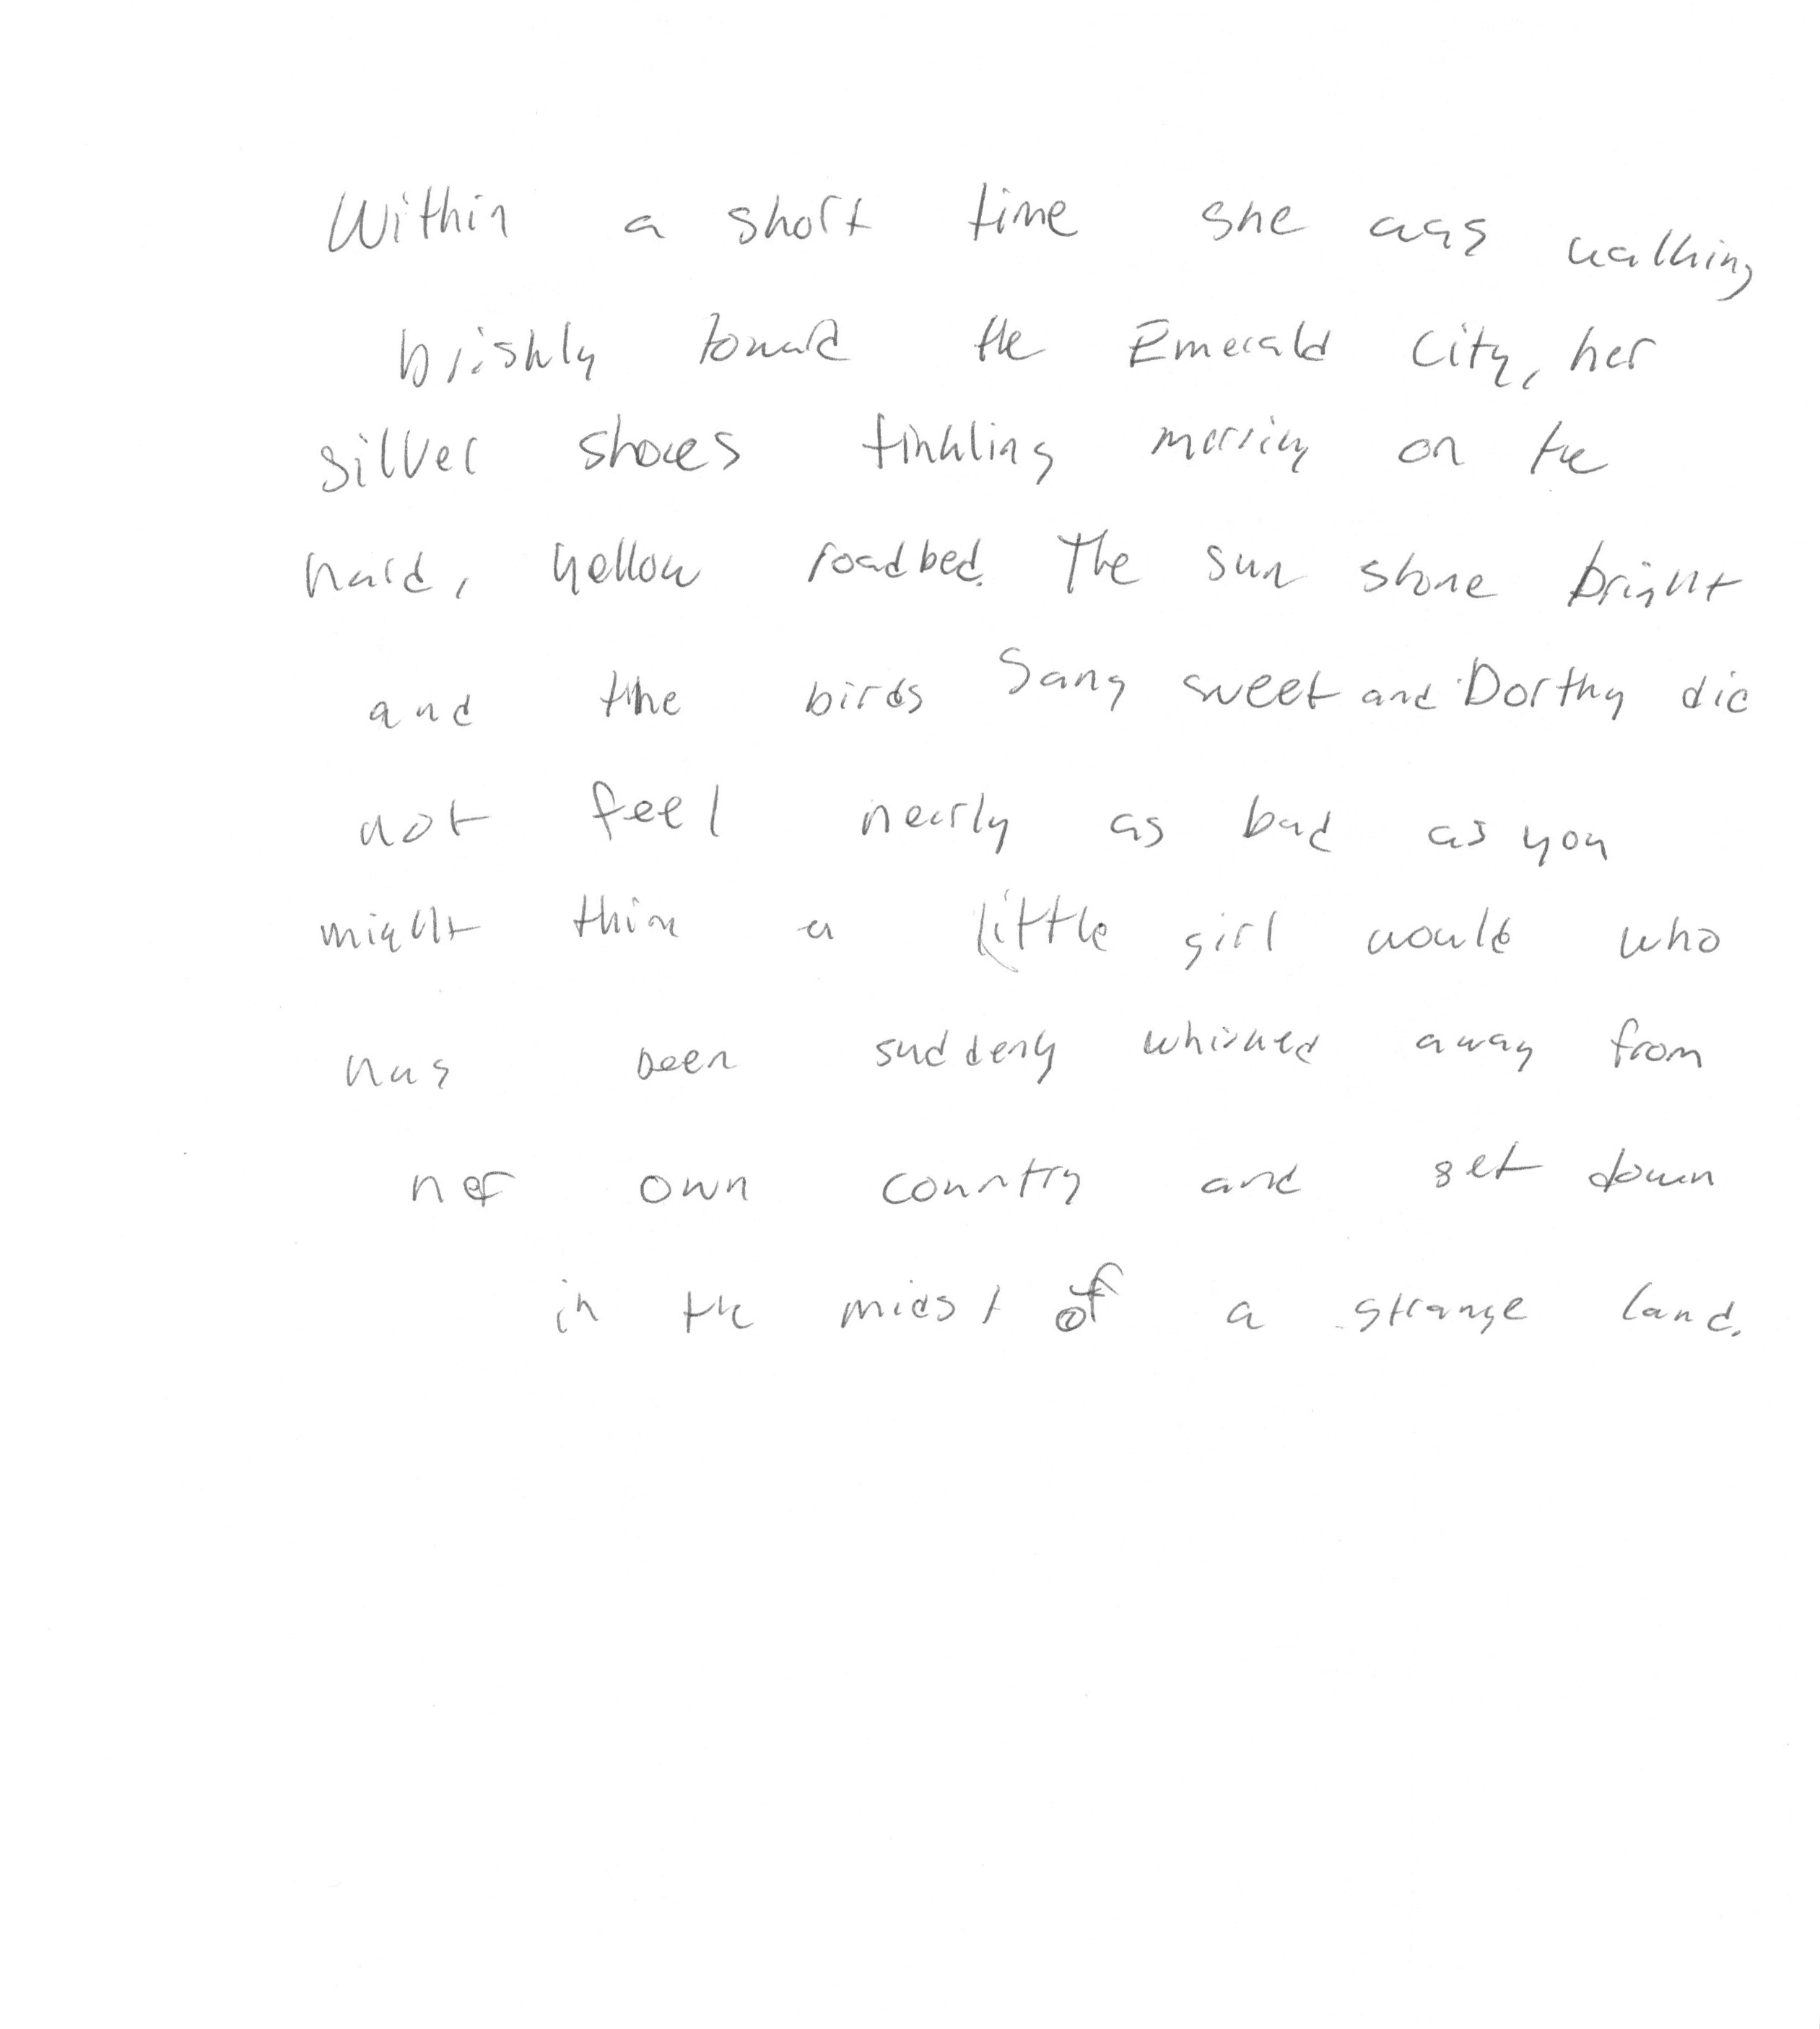 Within a short time she was walking
briskly toward the Emerald City, her
silver shoes tinkling merrily on the
hard, yellow roadbed. The sun shone bright
and the birds Sang sweet and Dorthy did
not feel nearly as bad as you
might think a little girl would who
has been suddenly whisked away from
her own country and set down
in the midst of a strange land.